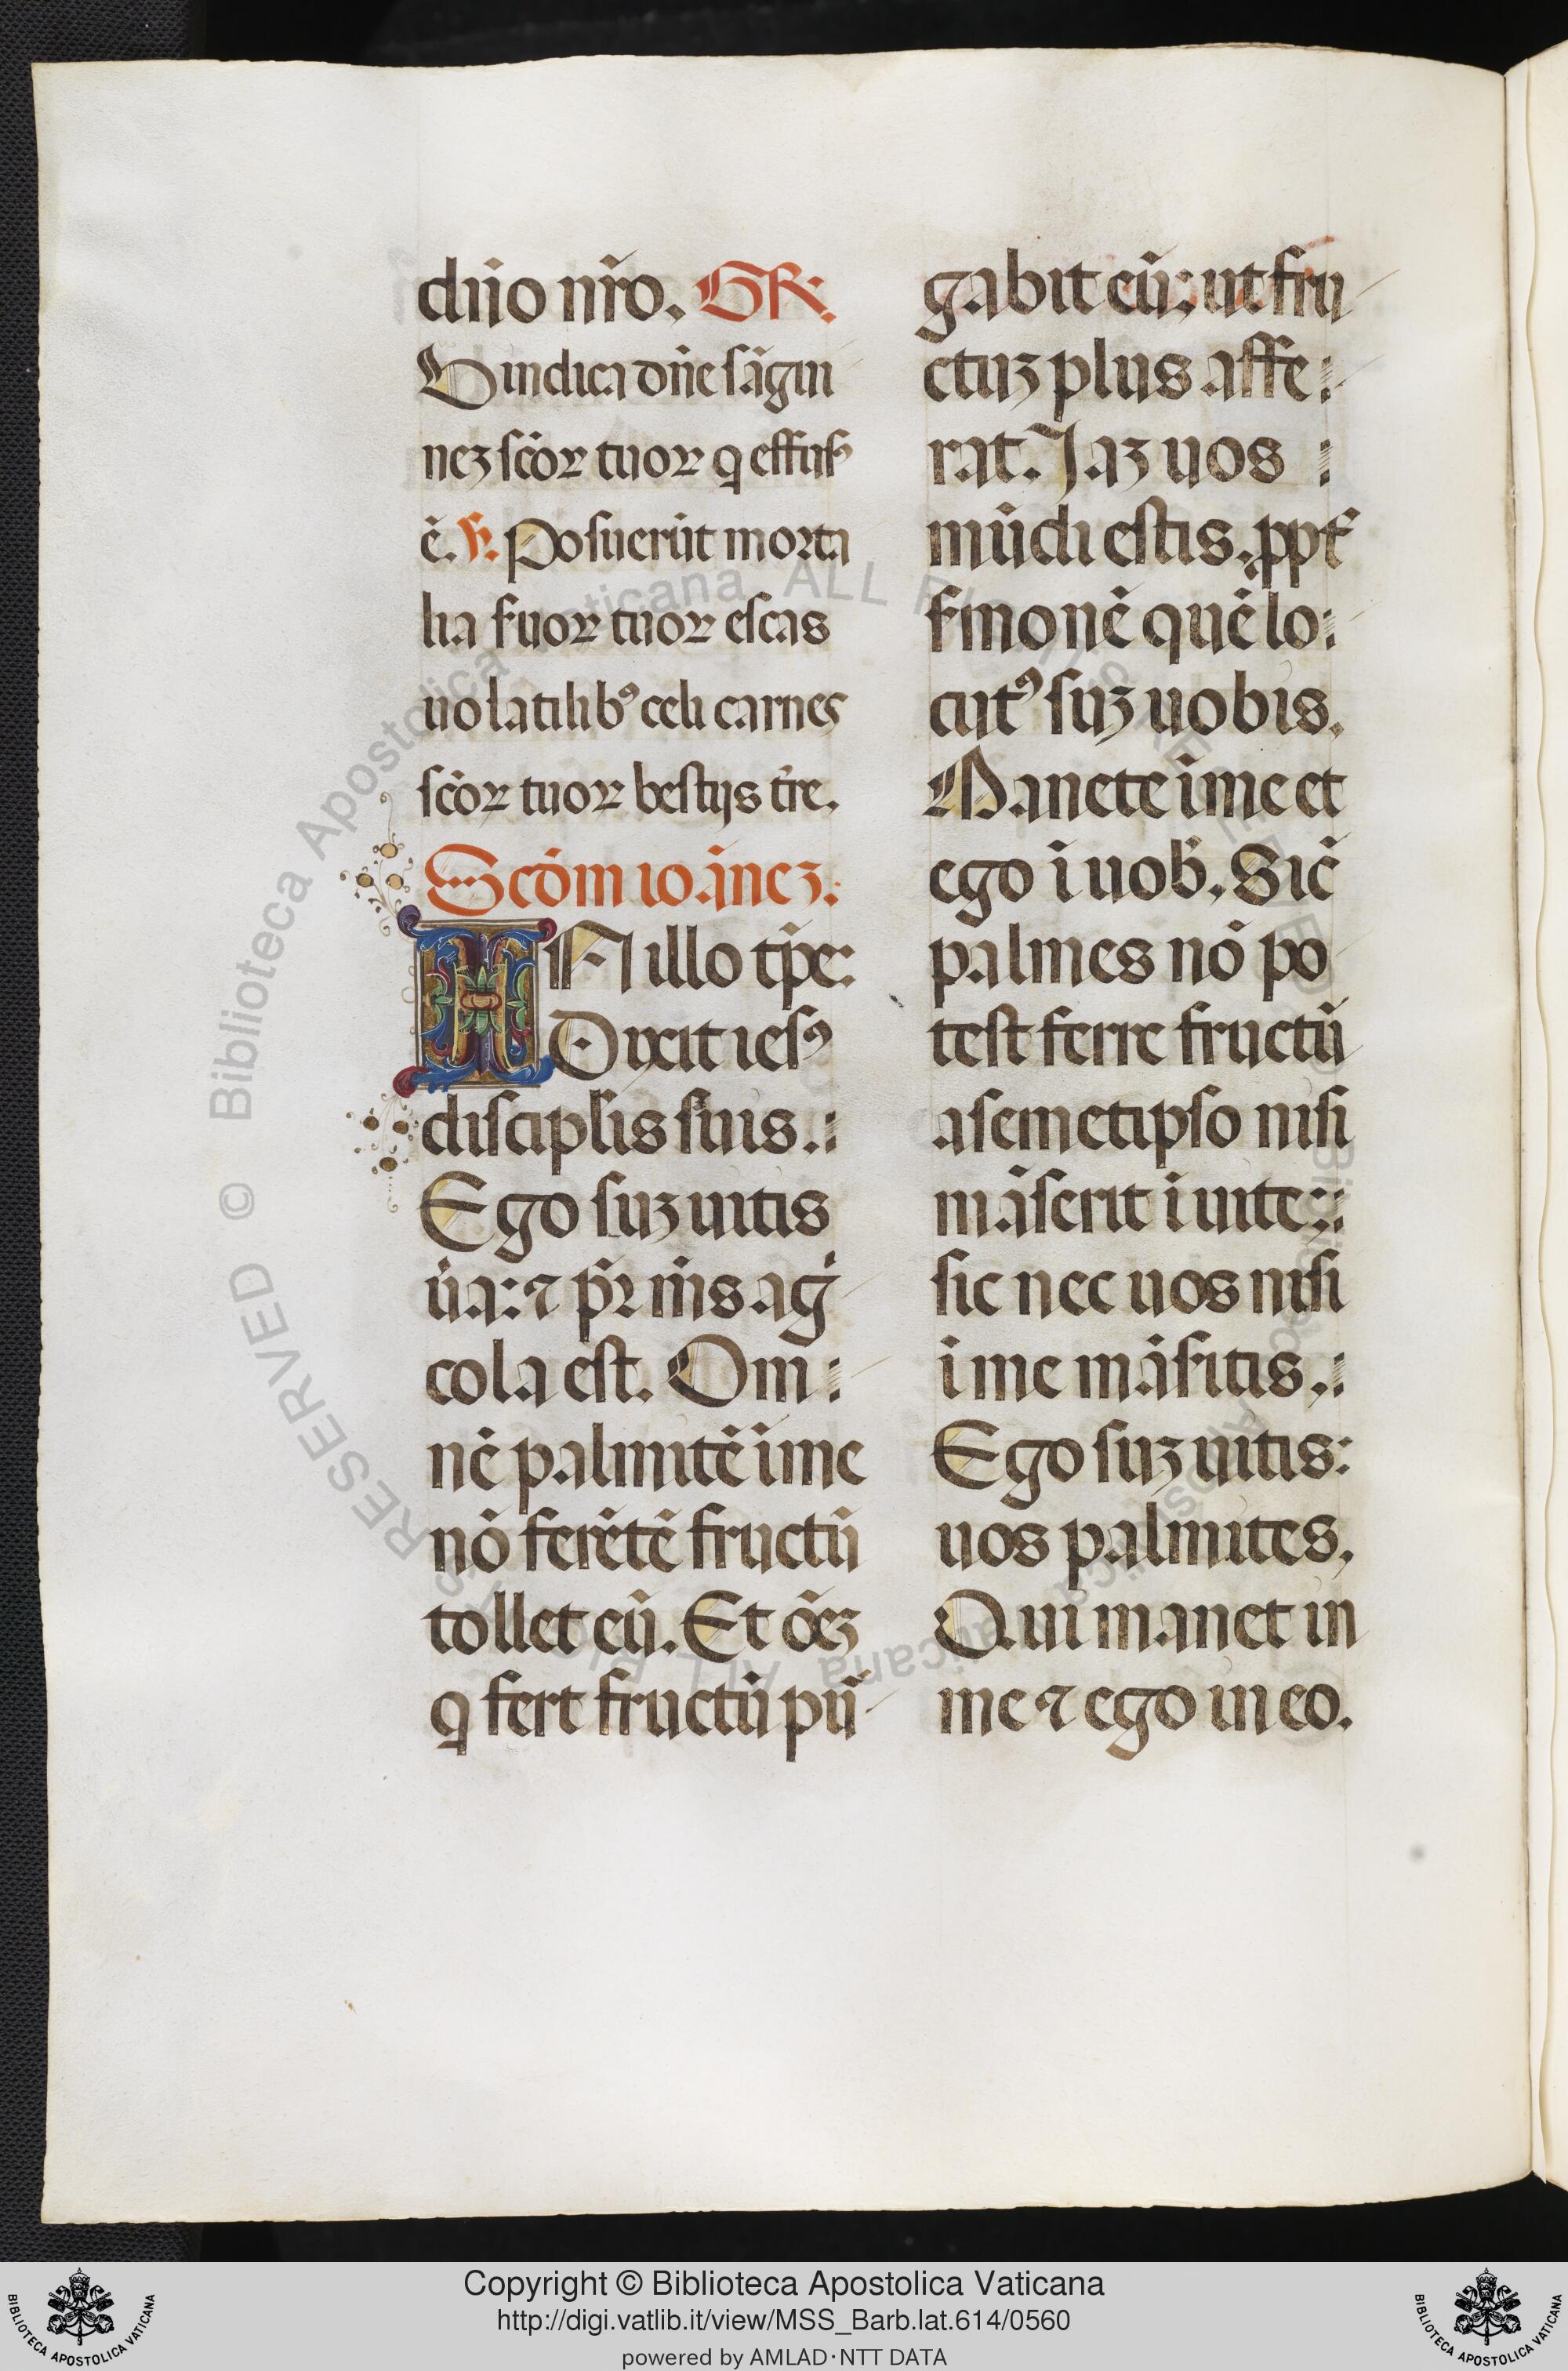 dño nr̃o. GR.
Vindica dñe sãgui
nez scõr tuor q effus
ẽ. V. Posuerũt morta
lia ſuor tuor escas
uolatilib⁹ celi carnes
scõr tuor bestijs tr̃e.
Scõm ioãnez.
IN illo tp̃e:
Dixit ies⁹
discipl̃is suis.
Ego suz uitis
ũa: ⁊ pr̃ m̃s ag̃
cola est. Om
nẽ palmitẽ ĩ me
nõ ferẽtẽ fructũ
tollet eũ. Et õez
q fert fructũ pũ
gabit eũ: ut fru
ctuz plus affe
rat. Jaz uos
mũdi estis. ppt̃
ſmonẽ quẽ lo
cut⁹ suz uobis.
Manete ĩ me et
ego ĩ uob̃. Sic̃
palmes nõ po
test ferre fructũ
a semetipso nisi
mãserit ĩ uite:
sic nec uos nisi
ĩ me mãſitis.
Ego suz uitis:
uos palmites.
Qui manet in
me ⁊ ego in eo.
© Biblioteca Apostolica Vaticana ALL RIGHTS RESERVED
Copyright © Biblioteca Apostolica Vaticana
http://digi.vatlib.it/view/MSS_Barb.lat.614/0560
powered by AMLAD·NTT DATA
BIBLIOTECA APOSTOLICA VATICANA
BIBLIOTECA APOSTOLICA VATICANA